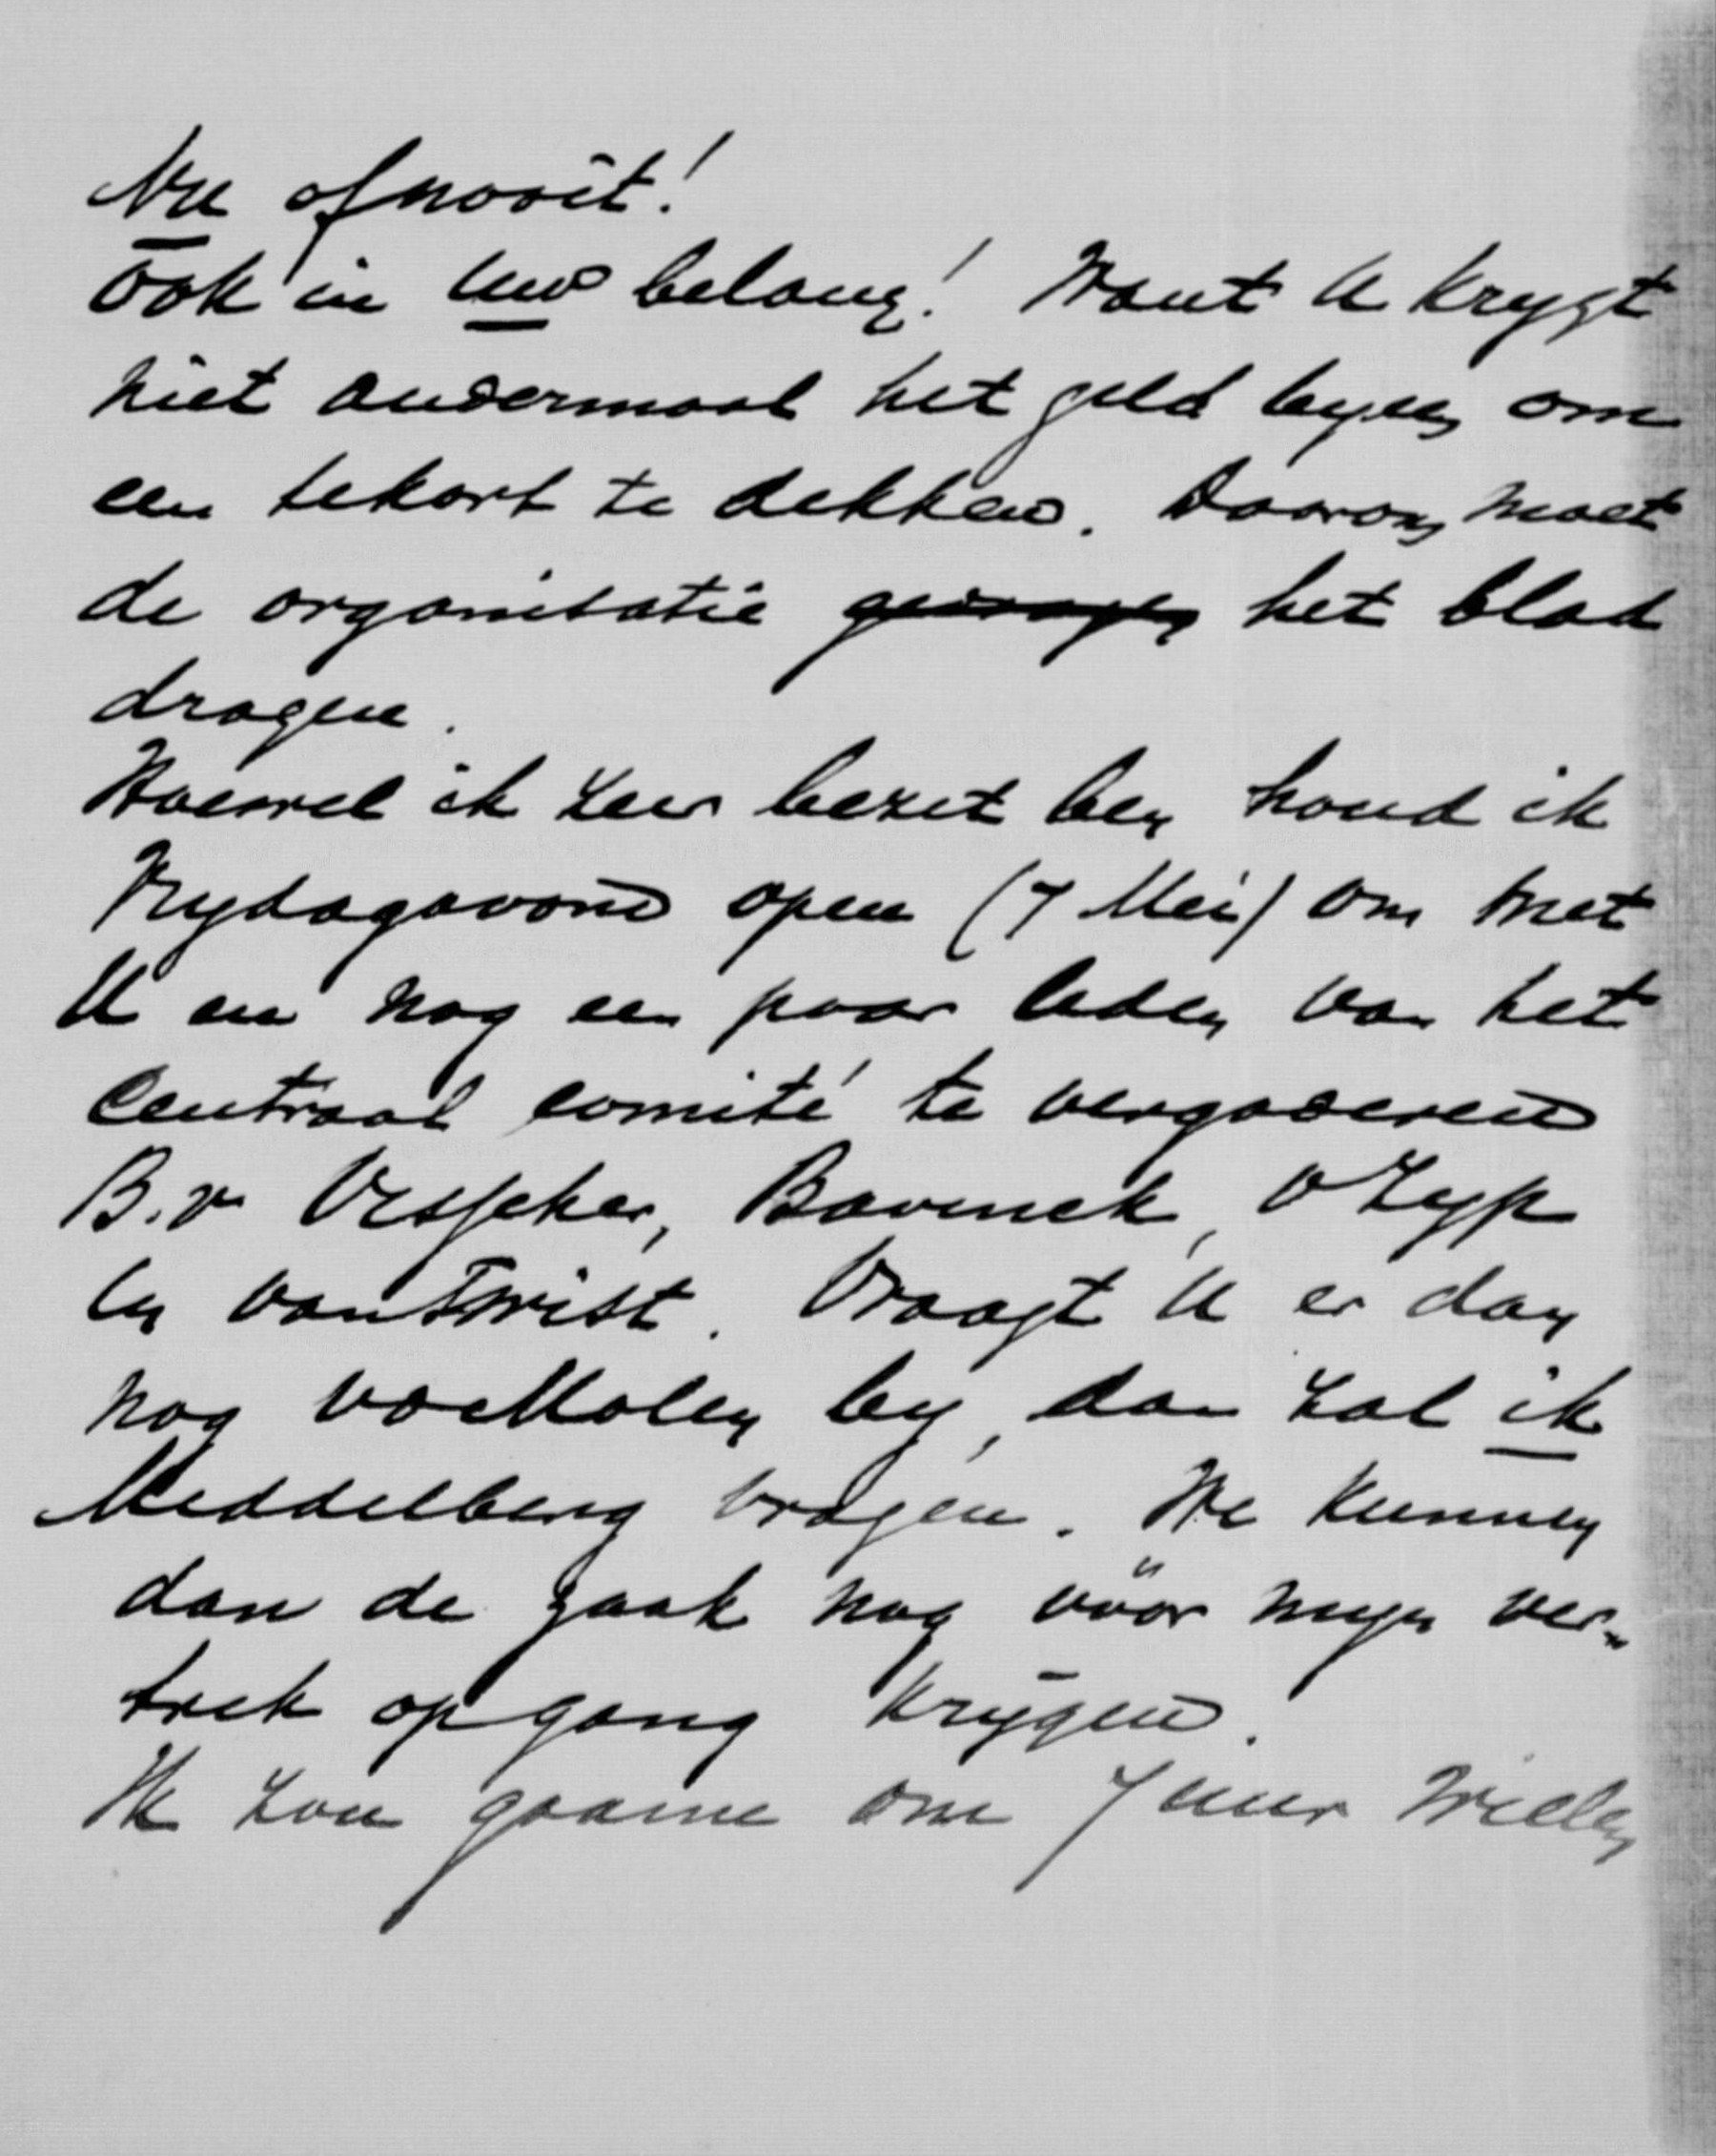 Nu of nooit!
Ook in Uw belang! Want U krygt
niet andermaal het geld byeen om
een tekort te dekken. Daarom moet
de organisatie gedragen het blad
dragen.
Hoewel ik zeer bezet ben houd ik
Vrydagavond open (7 Mei) om met
U en nog een paar leden van het
Centraal comité te vergaderen
B.v. Visscher, Bavinck, v Zyp
en van Twist. Vraagt U er dan
nog van der Molen by, dan zal ik
Middelberg vragen. We kunnen
dan de zaak nog vóór myn ver-
trek op gang krygen.
Ik zou gaarne om 7 uur willen